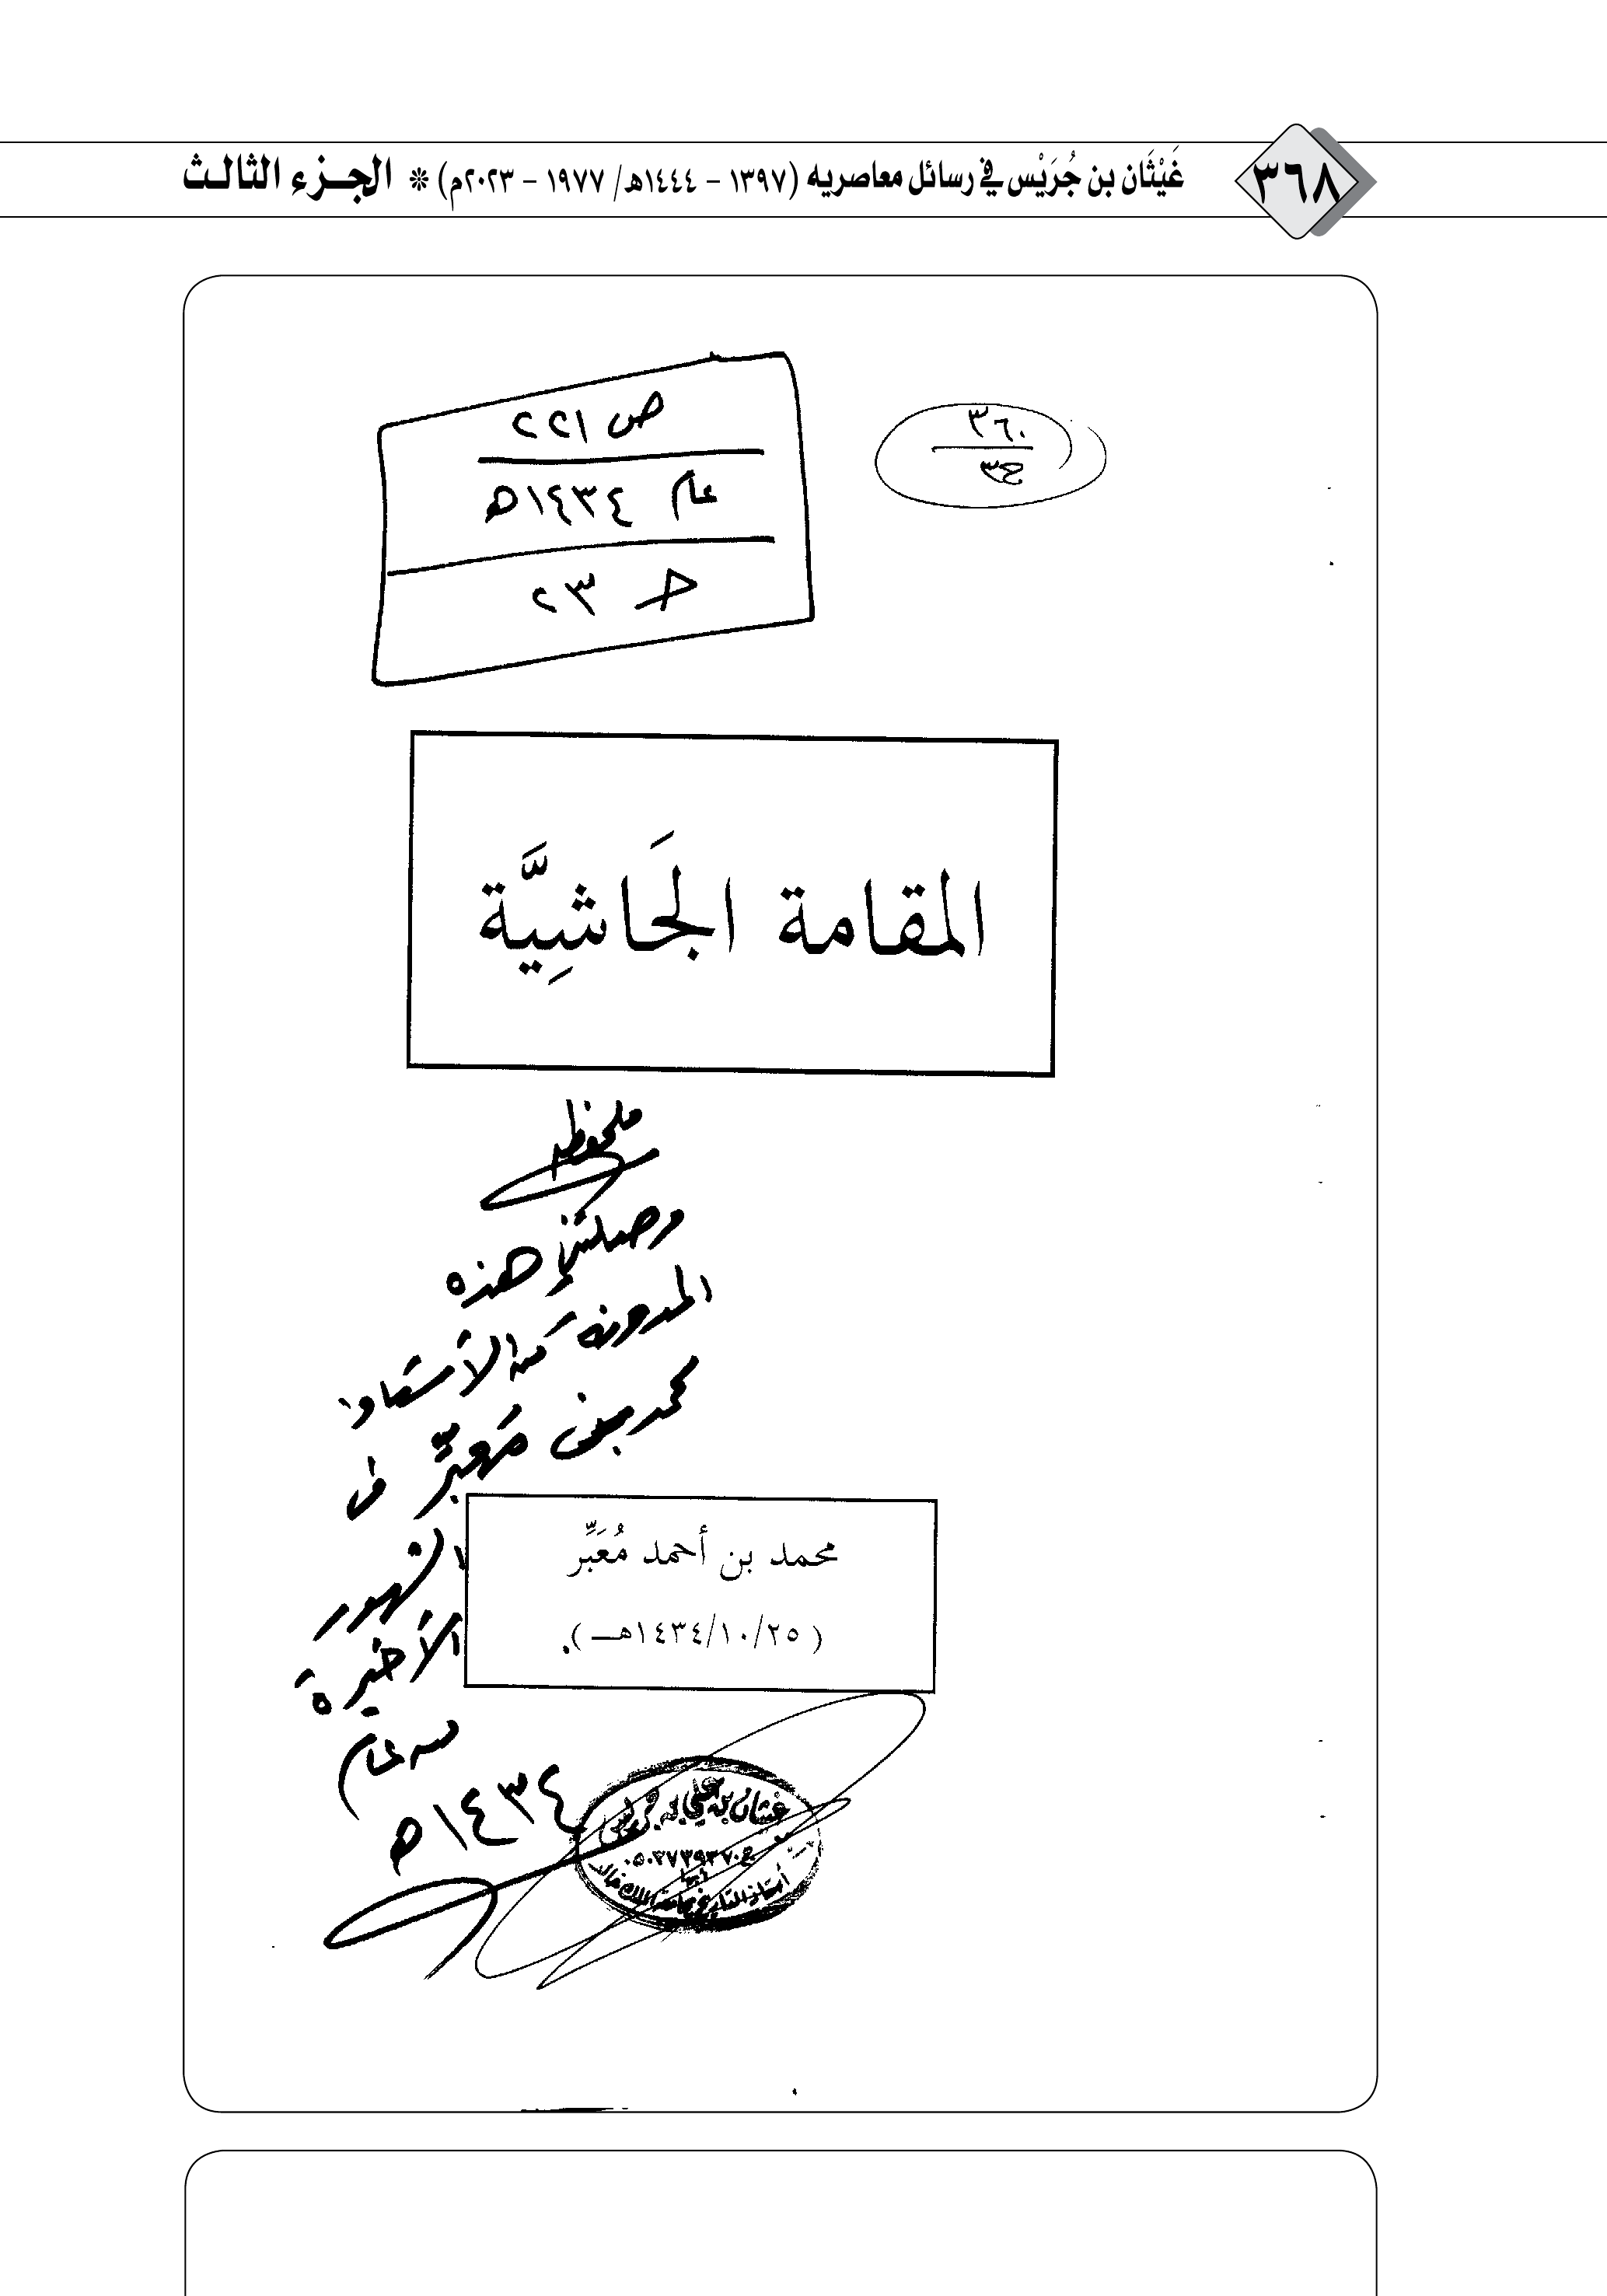 ٣٦٨ غَيْثَان بن جُرَيْس في رسائل معاصريه (١٣٩٧ - ١٤٤٤هـ/ ١٩٧٧ - ٢٠٢٣م) * الجـزء الثالـث
٣٦٠
ج٣
ص ٢٢١
عام ١٤٣٤هـ
حـ ٢٣
المقامة الجَاشِيَّة
ملحوظه
وصلتني هذه
المدونة من الأستاذ
محمد بن مُعبِّر في
الشهور
الأخيرة
من عام
١٤٣٤هـ
محمد بن أحمد مُعَبِّر
(٢٥/١٠/١٤٣٤هـــ).
غيثان بن علي بن جريس
أستاذ التاريخ بجامعة الملك خالد